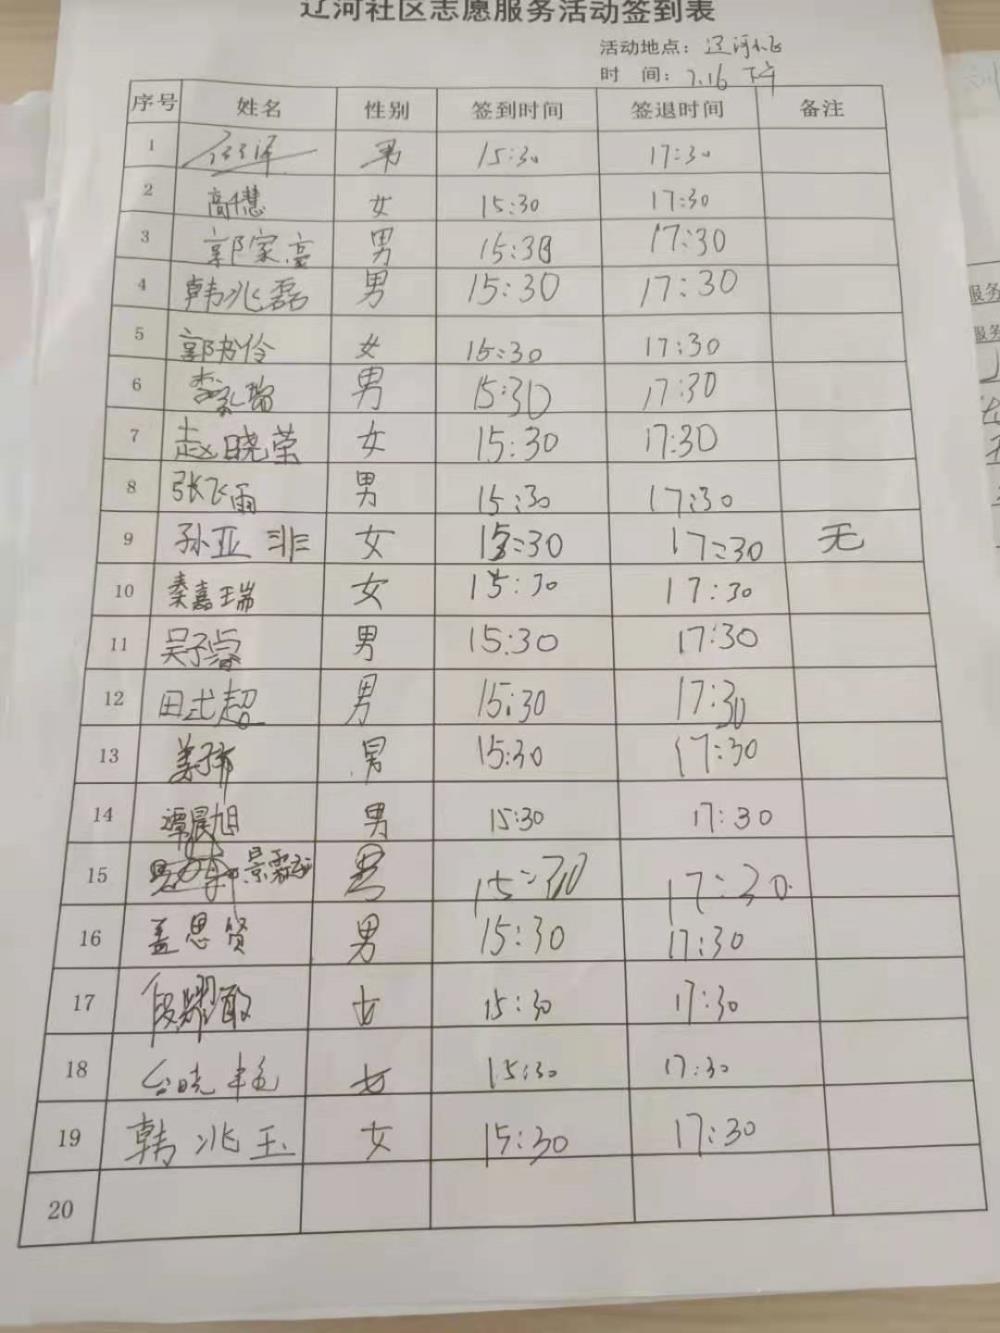 辽河社区志愿服务活动签到表
活动地点：辽河
时 间：7.16 下午
序号 姓名 性别 签到时间 签退时间 备注
1 男 15:30 17:30
2 高慧 女 15:30 17:30
3 郭家亮 男 15:30 17:30
4 韩兆磊 男 15:30 17:30
5 郭 伶 女 15:30 17:30
6 李 瑞 男 15:30 17:30
7 赵晓荣 女 15:30 17:30
8 张飞雨 男 15:30 17:30
9 孙亚非 女 15:30 17:30 无
10 秦嘉瑞 女 15:30 17:30
11 吴子睿 男 15:30 17:30
12 田式超 男 15:30 17:30
13 姜 男 15:30 17:30
14 谭晨旭 男 15:30 17:30
15 景 男 15:30 17:30
16 盖思贤 男 15:30 17:30
17 段耀敢 女 15:30 17:30
18 台晓 女 15:30 17:30
19 韩兆玉 女 15:30 17:30
20
服务
服务